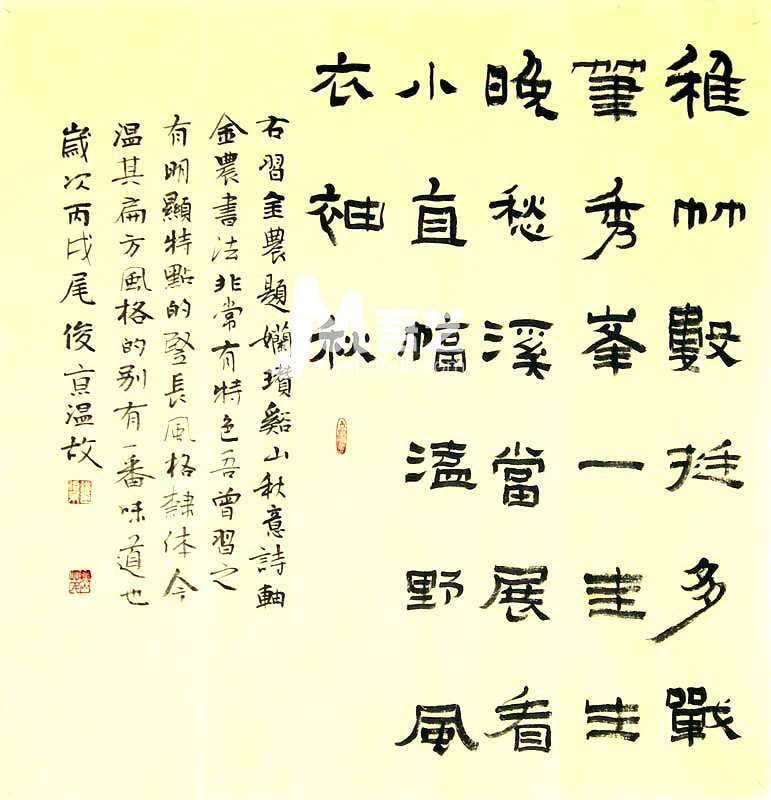 稚竹數挺多戰
筆秀峯一圭生
晚愁溪當展看
小直幅溘野風
衣袖秋
右習金農題嬾瓚谿山秋意詩軸
金農書法非常有特色吾曾習之
有明顯特點的竪長風格隸体今
温其扁方風格的别有一番味道也
歲次丙戌尾俊亰温故